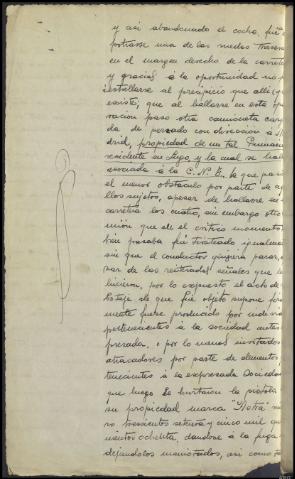 y así abandonando el coche, fué
portiese una de las ruedas traseras
en el margen derecho de la carretera
y gracias á la oportunidad no
estrellarse al precipicio que allí
existe, que al hallarse en esta
paso otra camioneta car
da de pescado con dirección á M
drid, propiedad de un tal
residente en Lugo y la cual se halla
asociada á la C. N. T., la que pa
el menor obstáculo por parte de a
llos sujetos, apesar de hallarse en
carretera los cuatro, sin embargo otro
mión que en el crítico momento
bien pasaba fué tiroteado igualmen
sin que el conductor quisiera parar, a
par de las reiteradas señales que le
hicieron, por lo expuesto el acto de
botaje de que fué objeto supone
mente fuese producido por individ
pertenecientes á la sociedad antes
presada, o por lo menos invitados
atracadores por parte de elementos
tenecientes á la expresada Sociedad
que luego le hurtaron la pistola
su propiedad marca Astra
ro trescientos setenta y cinco mil qui
nientos ochenta, dandose á la fuga
dejandolos maniatados, así como